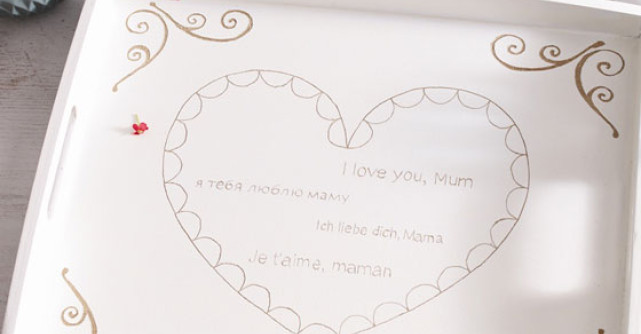 I love you, Mum
я тебя люблю маму
Ich liebe dich, Mama
Je t'aime, maman